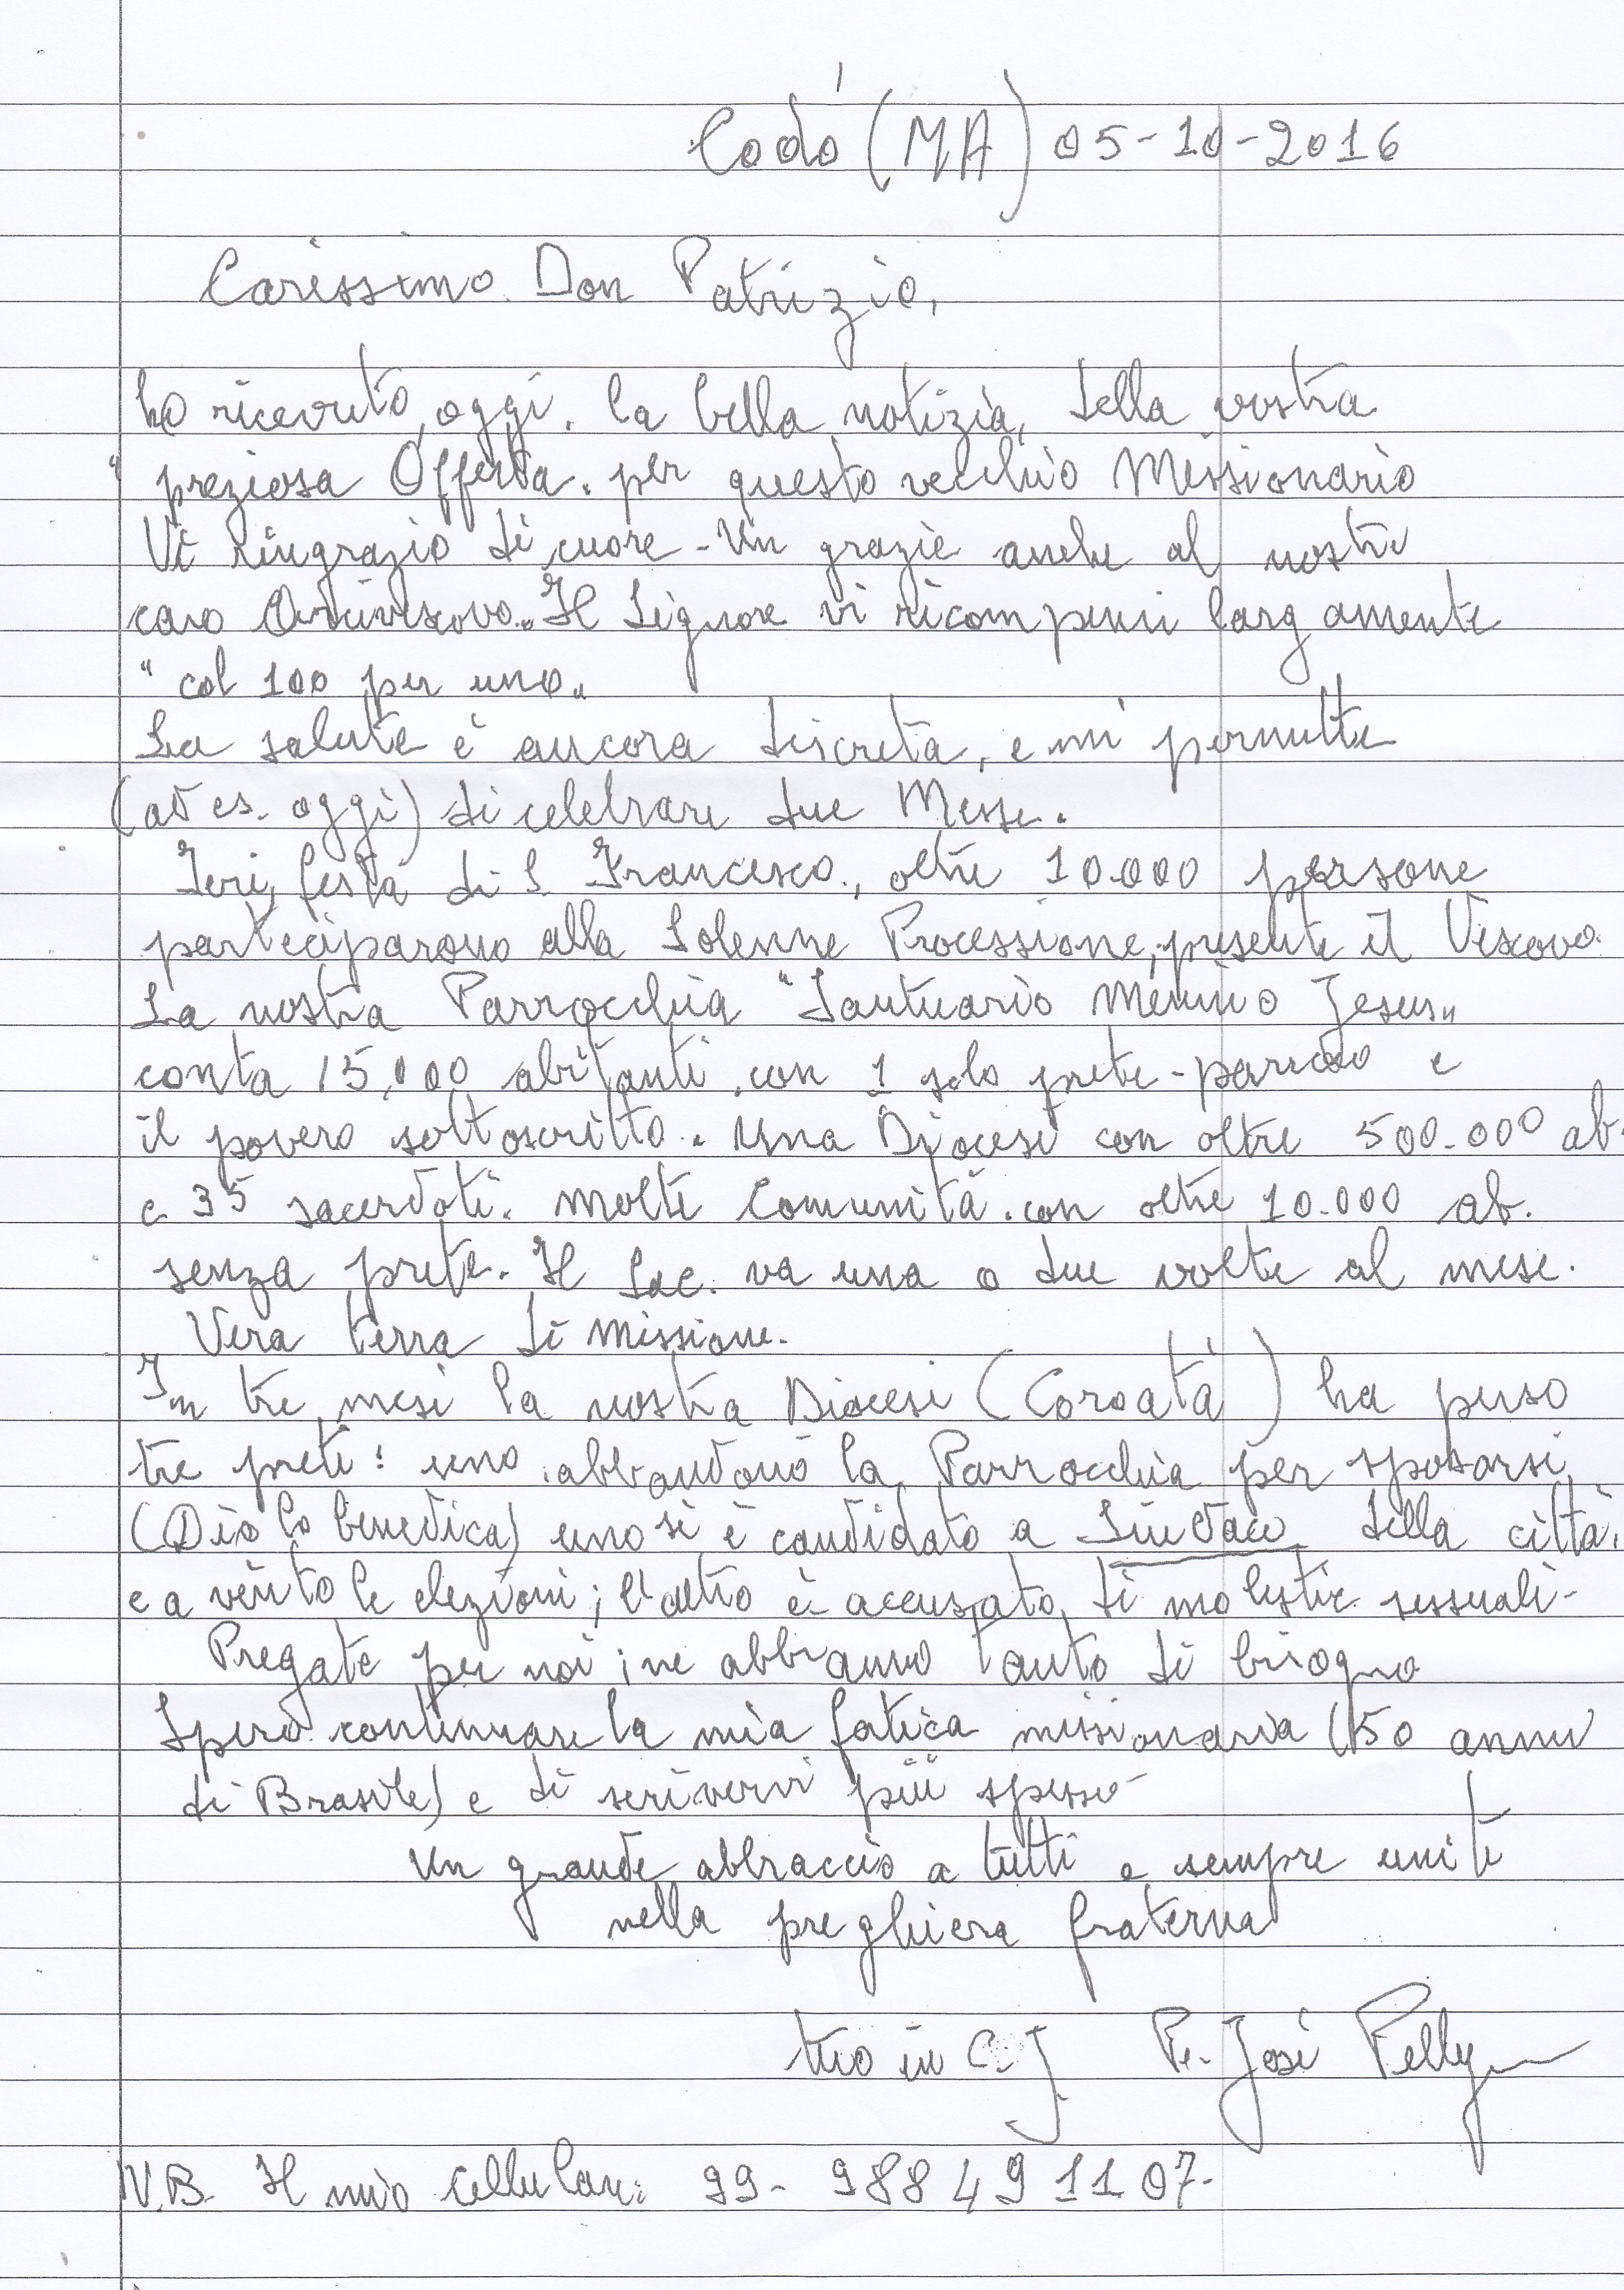 Codó (MA) 05-10-2016
Carissimo Don Patrizio,
ho ricevuto, oggi, la bella notizia, della vostra
"preziosa Offerta. per questo vecchio Missionario
Vi ringrazio di cuore - Un grazie anche al nostro
caro Arcivescovo. Il Signore vi ricompensi largamente
"col 100 per uno„
La salute è ancora discreta, e mi permette
(ad es. oggi) di celebrare due Messe.
Ieri, festa di S. Francesco, oltre 10.000 persone
parteciparono alla Solenne Processione, presente il Vescovo.
La nostra Parrocchia "Santuario Menino Jesus„
conta 15.000 abitanti con 1 solo prete-parroco e
il povero sottoscritto. Una Diocesi con oltre 500.000 ab.
e 35 sacerdoti. Molte Comunità con oltre 10.000 ab.
senza prete. Il Sac. va una o due volte al mese.
Vera terra di missione.
In tre mesi la nostra Diocesi (Coroatá) ha perso
tre preti: uno abbandonò la Parrocchia per sposarsi
(Dio lo benedica) uno si è candidato a Sindaco della città.
e a vinto le elezioni; l'altro è accusato di molestie sessuali-
Pregate per noi; ne abbiamo tanto di bisogno
Spero continuare la mia fatica missionaria (50 anni
di Brasile) e di scrivervi più spesso-
Un grande abbraccio a tutti e sempre uniti
nella preghiera fraterna
tuo in C. J. Pe. José
N.B. Il mio cellulare: 99- 988491107.